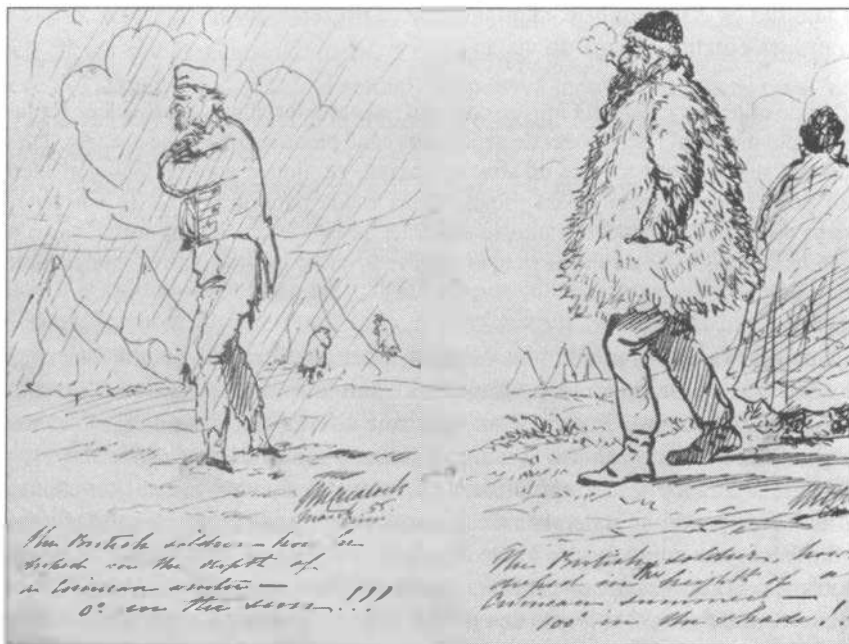 March 55
The British soldier — how he
looked in the depth of
a Crimean winter —
0° in the sun !!!
The British soldier, how
draped in the height of a
Crimean summer —
100° in the shade !